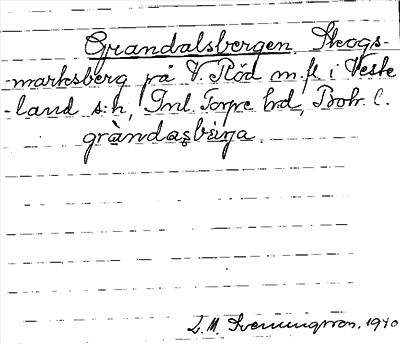 Grandalsbergen. Skogs-
-marksberg på V. Röd m.fl. i Veste
-land s:n, Inl. Torpe hd, Boh. l.
gràndasbærja.
L.M. Svenungsson. 1940